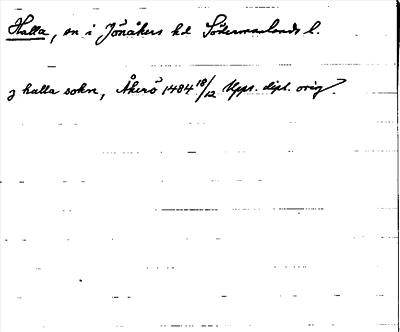 Halla, sn i Jönåkers hd Södermanlands l.
j halla sokn, Åkerö 1484 18/12 Upps. dipl. orig